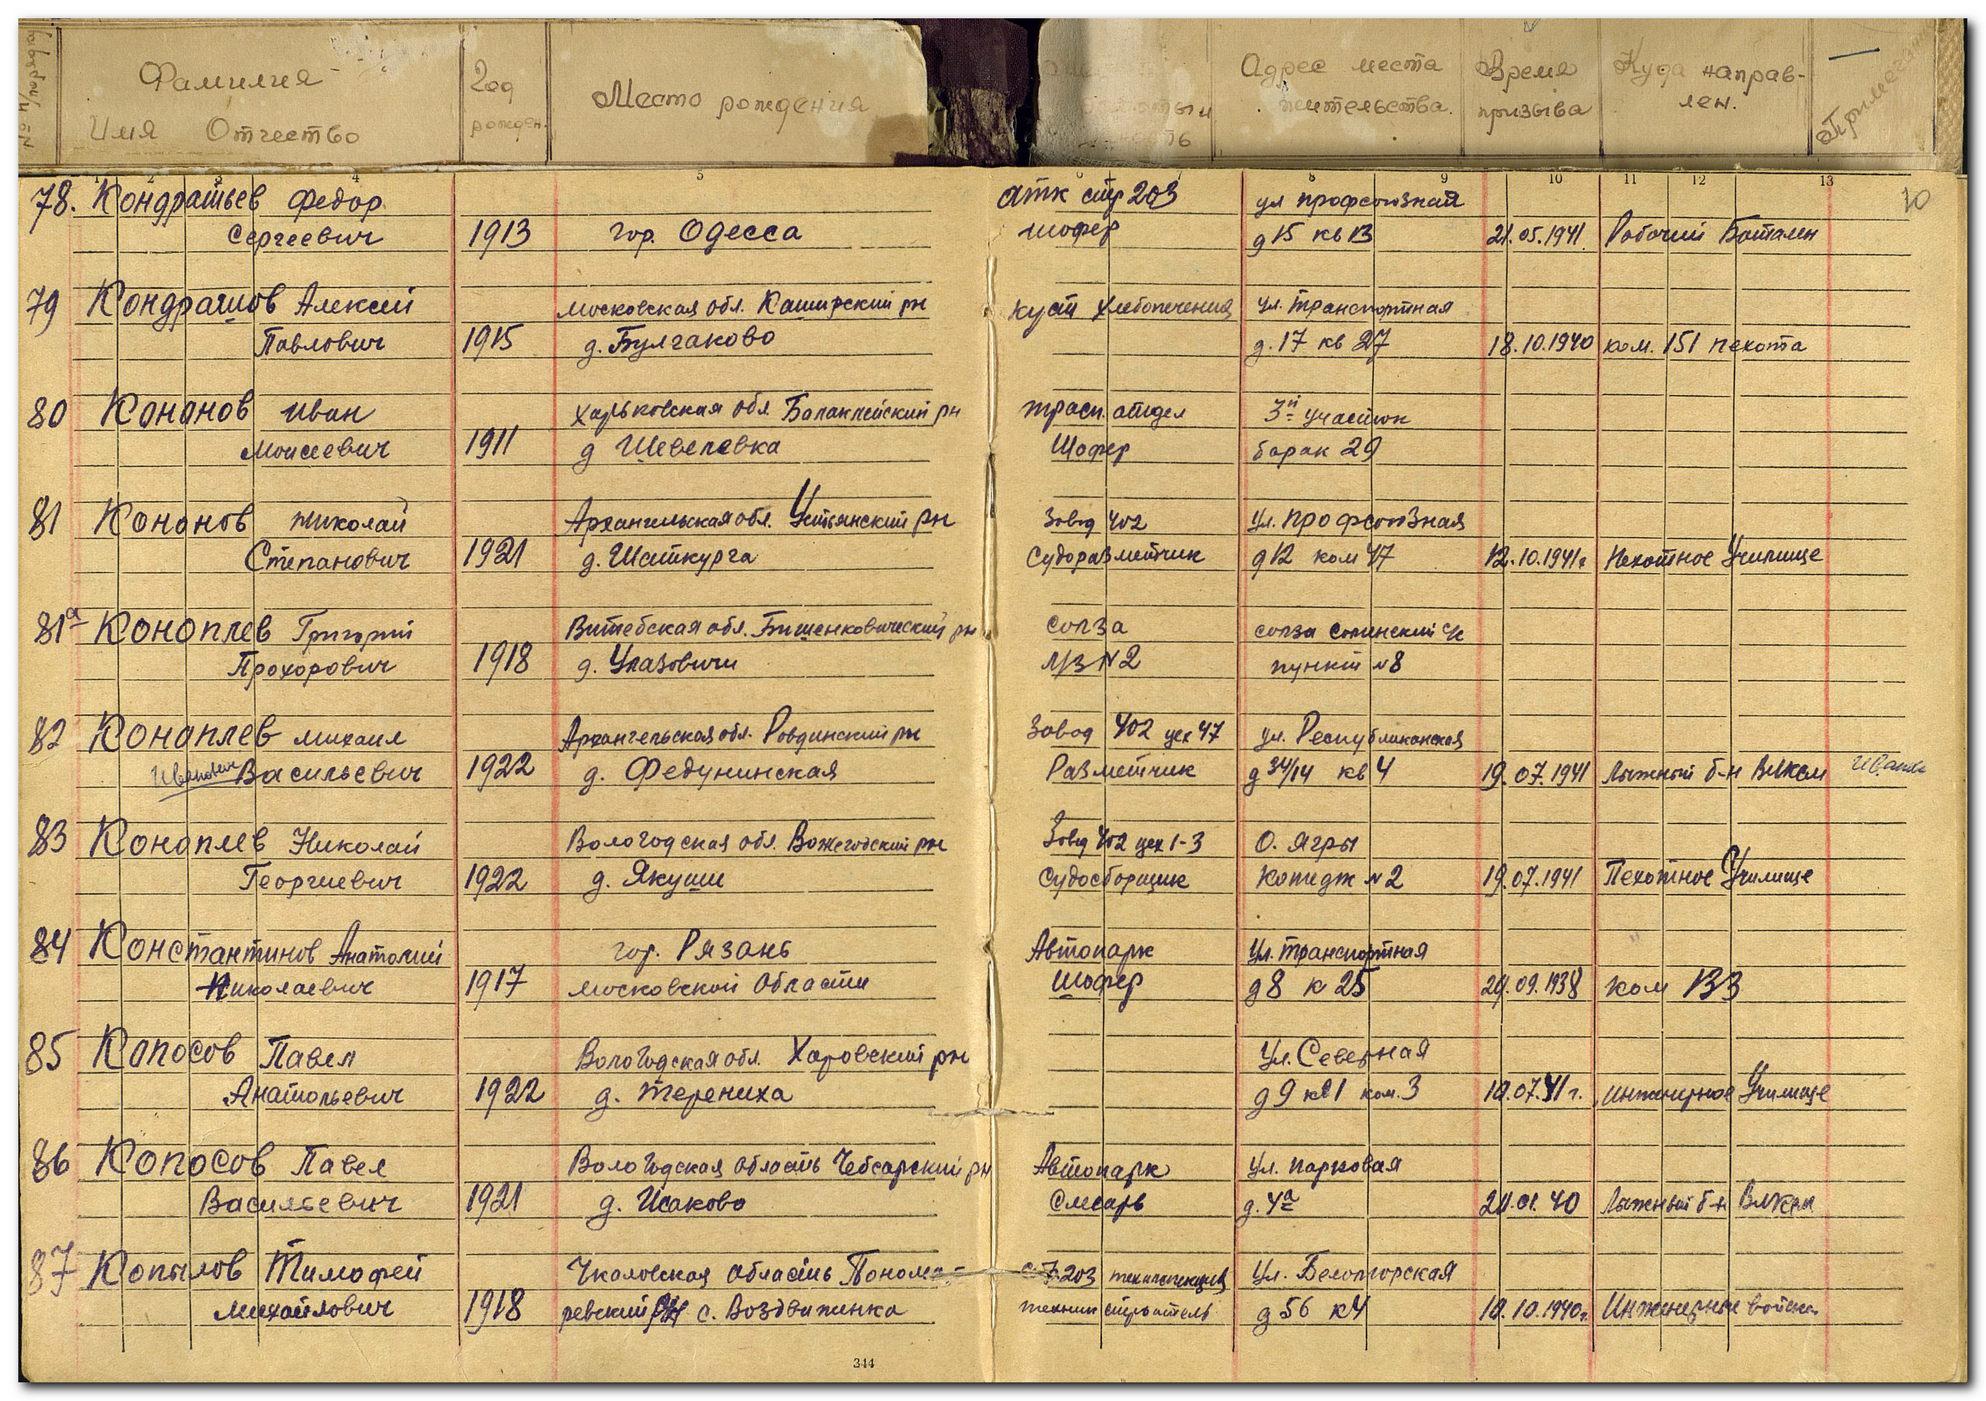 Фамилия
Имя Отчество
Год
рожден.
Место рождения
Адрес места
жительства.
Время
призыва
Куда направ-
лен.
Примечание
1 2 3 4 5 6 7 8 9 10 11 12 13
10
78. Кондратьев Федор атк стр 203 ул профсоюзная
Сергеевич 1913 гор. Одесса шофер д 15 кв 13 21.05.1941 Рабочий Батален
79 Кондрашов Алексей Московская обл. Каширский рн куст Хлебопечения ул. Транспортная
Павлович 1915 д. Булгаково д. 17 кв 27 18.10.1940 ком. 151 пехота
80 Кононов Иван Харьковская обл Балаклейский рн трасп. отдел 3й участок
Моисеевич 1911 д Шевелевка Шофер барак 29
81 Кононов Николай Архангельская обл. Устьянский рн Завод 402 ул. Профсоюзная
Степанович 1921 д. Шаткурга Судоразметчик д 12 ком 47 12.10.1941г Пехотное Училище
81а Коноплев Григорий Витебская обл. Бешенковический рн солза солза
Прохорович 1918 д. Улазовичи л/з N2 пункт N8
82 Коноплев Михаил Архангельская обл. Ровдинский рн Завод 402 цех 47 ул. Республиканская
Иванович Васильевич 1922 д. Федунинская Разметчик д 34/14 кв 4 19.07.1941 Лыжный б-н Влксм
83 Коноплев Николай Вологодская обл. Вожегодский рн Завод 402 цех 1-3 О. Ягры
Георгиевич 1922 д. Якуши Судосборщик Котедж N2 19.07.1941 Пехотное Училище
84 Константинов Анатолий гор. Рязань Автопарк Ул. Транспортная
Николаевич 1917 Московской Области Шофер д 8 к 25 29.09.1938 ком 133
85 Копосов Павел Вологодская обл. Харовский рн Ул. Северная
Анатольевич 1922 д. Терениха д 9 кв 1 ком. 3 19.07.41г. Инженерное Училище
86 Копосов Павел Вологодская область Чебсарский рн Автопарк Ул. парковая
Васильевич 1921 д. Исаково Слесарь д. 4а 24.01.40 Лыжный б-н Влксм
87 Копылов Тимофей Чкаловская область Понома- 203 Ул. Беломорская
Михайлович 1918 ревский рн с. Воздвиженка техник строитель д 56 к 4 10.10.1940г. Инженерные войска
344